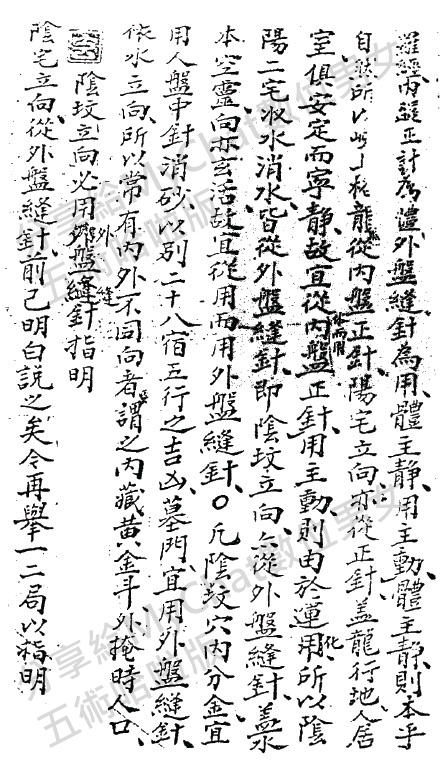 羅經內盤正針為體外盤縫針為用體主靜用主動體主靜則本乎
自然所以格龍從內盤正針陽宅立向亦從正針蓋龍行地人居
室俱安定而寧靜故宜從內盤正針用主動則由於運用化所以陰
陽二宅收水消水皆從外盤縫針即陰墳立向亦從外盤縫針蓋水
本空靈向亦玄活故宜從用而用外盤縫針〇凡陰墳穴內分金宜
用人盤中針消砂以別二十八宿五行之吉凶墓門宜用外盤縫針
依水立向所以常有內外不同向者謂之內藏黃金斗外掩時人口
陰墳立向必用外盤縫針指明
陰宅立向從外盤縫針前已明白說之矣今再舉一二局以指明